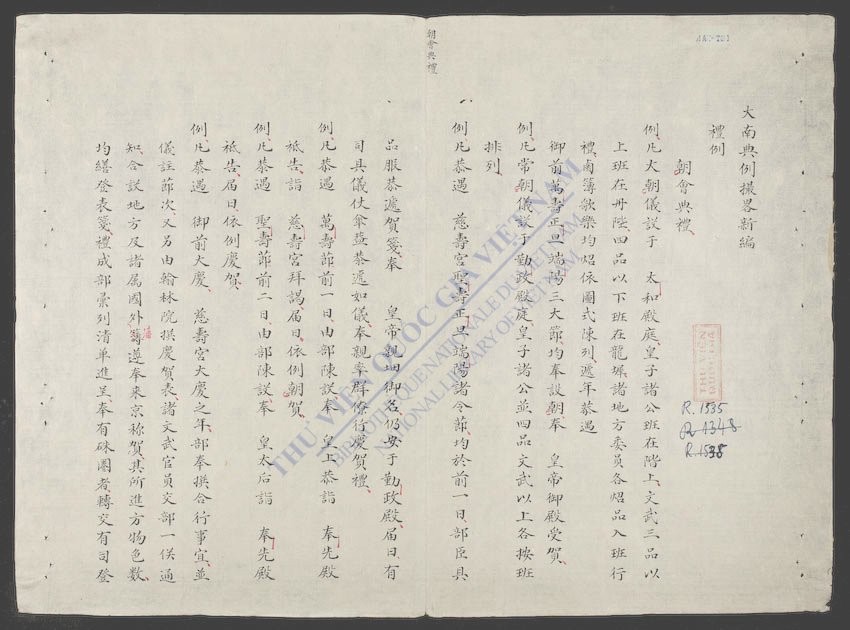 大南典例撮畧新編
禮例
朝會典禮
例凡大朝儀設于 太和殿庭皇子諸公班在階上文武三品以
上班在丹陛四品以下班在龍墀諸地方委員各炤品入班行
禮鹵簿歌樂均炤依圖式陳列遞年恭遇
御前萬壽正旦端陽三大節均奉設朝奉 皇帝御殿受賀
例凡常朝儀設于勤政殿庭皇子諸公並四品文武以上各按班
排列
例凡恭遇 慈壽宮聖壽正旦端陽諸令節均於前一日部臣具
朝會典禮
品服恭遞賀箋奉 皇帝親御名仍安于勤政殿屆日有
司具儀仗傘葢恭遞如儀奉親率群僚行慶賀禮
例凡恭遇 萬壽節前一日由部陳設奉 皇上恭詣 奉先殿
祗告詣 慈壽宮拜謁屆日依例朝賀
例凡恭遇 聖壽節前二日由部陳設奉 皇太后詣 奉先殿
祗告屆日依例慶賀
例凡恭遇 御前大慶 慈壽宮大慶之年部奉撰合行事宜並
儀註節次又另由翰林院撰慶賀表諸文武官員交部一候通
知合設地方及諸属國外藩遵奉來京称賀其所進方物色數
均繕登表箋禮成部彙列清单進呈奉有硃圈者轉交有司登
THƯ VIỆN QUỐC GIA VIỆT NAM
BIBLIOTHEQUE NATIONALE DU VIETNAM
NATIONAL LIBRARY OF VIETNAM
THU VIEN
R.1535
R.1348
R.1538